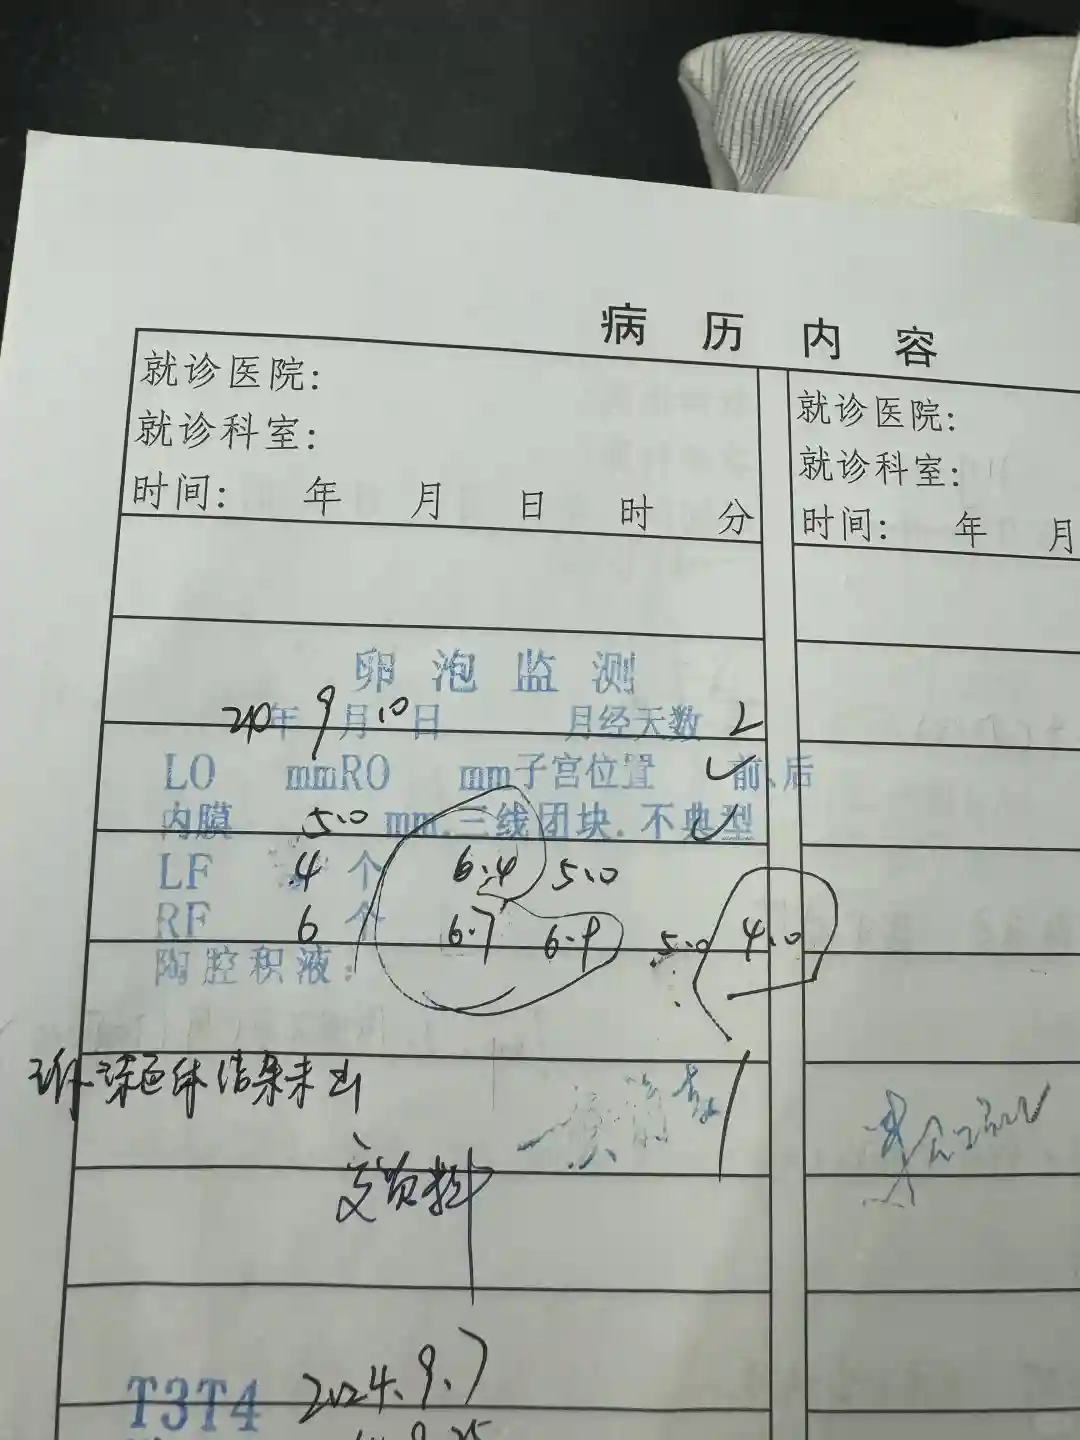 病历内容
就诊医院:
就诊科室:
时间: 年 月 日 时 分
就诊医院:
就诊科室:
时间: 年 月
卵泡监测
年 9月10日 月经天数 2
LO mmRO mm子宫位置 前、后
内膜 5.0 mm.三线团块.不典型
LF 4 个 6.4 5.0
RF 6 个 6.7 6.9 5.0 4.0
陶腔积液:
染色体结果未出
交资料
T3T4 2024.9.7